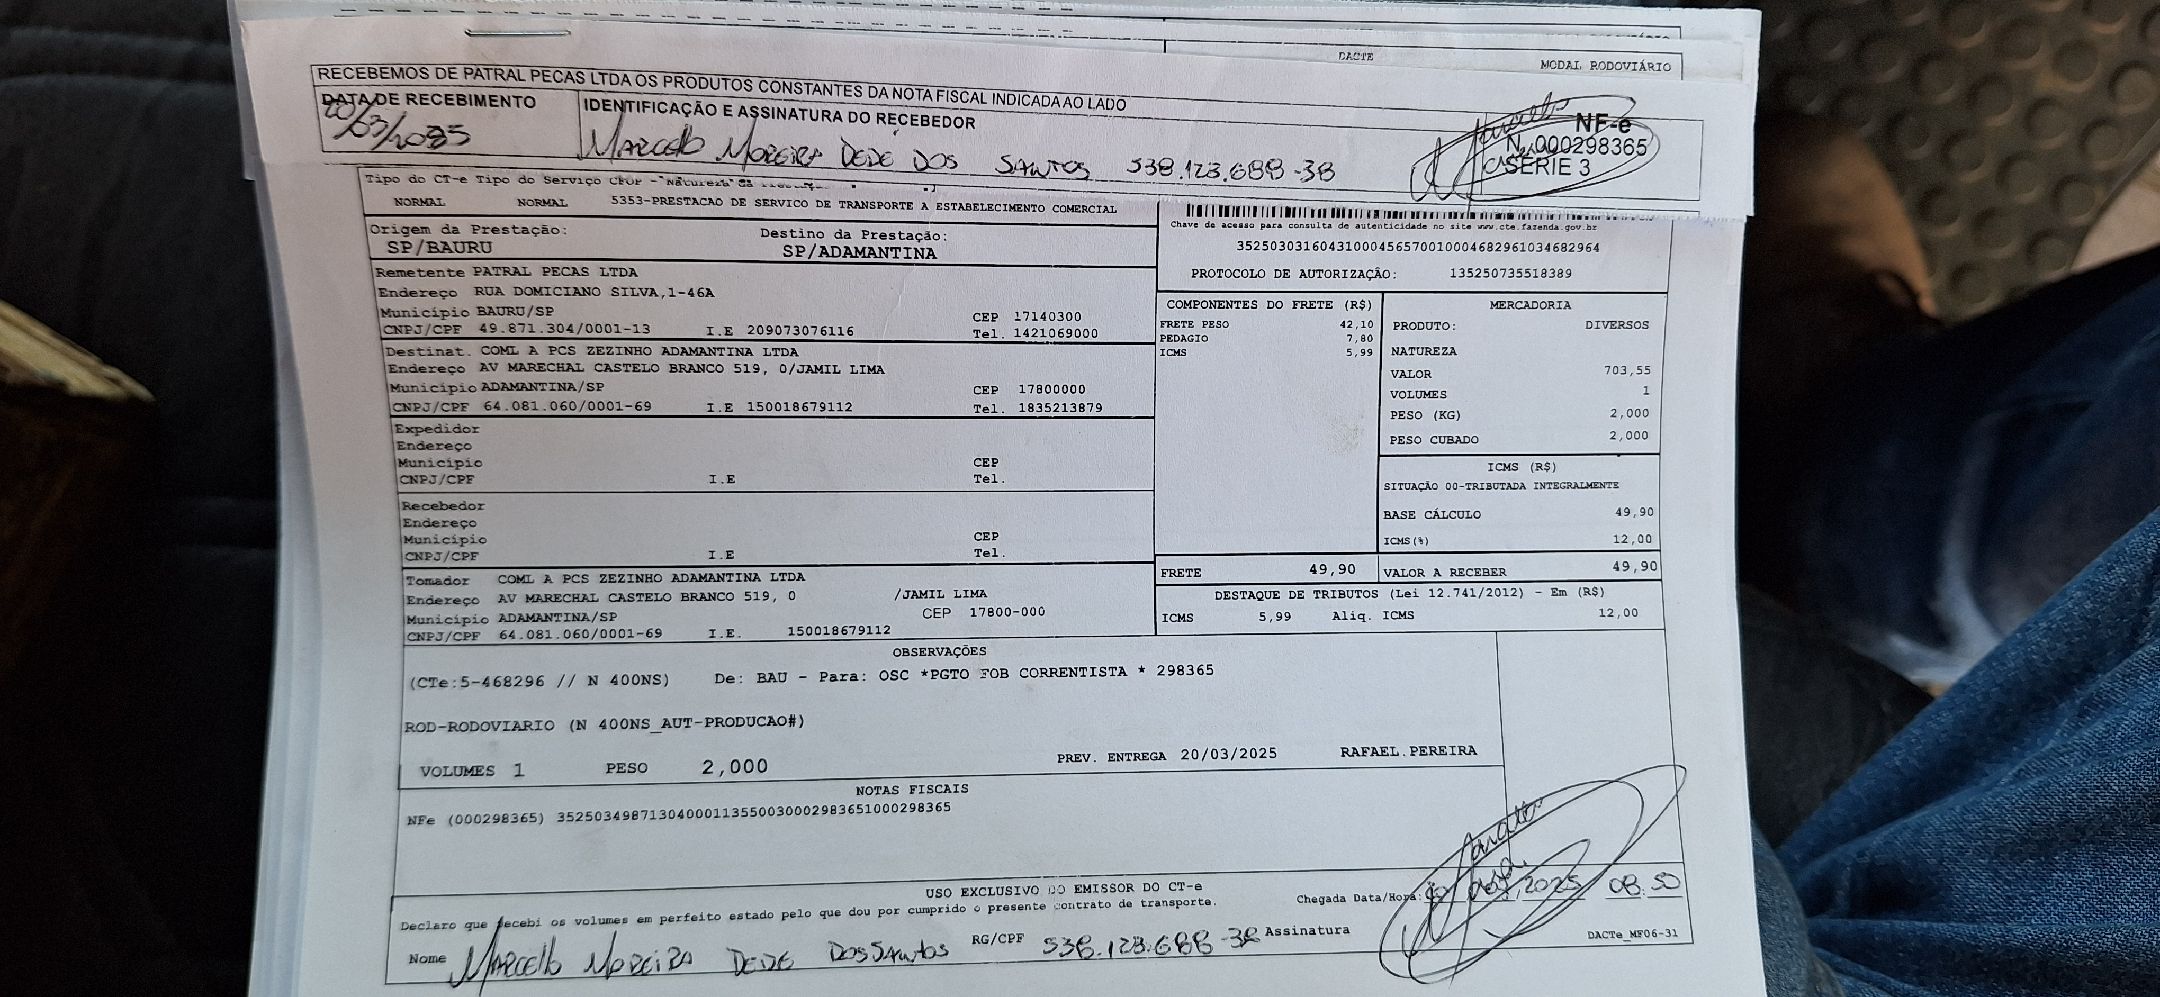 DACTE
MODAL RODOVIÁRIO
RECEBEMOS DE PATRAL PECAS LTDA OS PRODUTOS CONSTANTES DA NOTA FISCAL INDICADA AO LADO
DATA DE RECEBIMENTO
20/03/2025
IDENTIFICAÇÃO E ASSINATURA DO RECEBEDOR
MARCELLO MOREIRA DEDE DOS SANTOS 538.128.688-38
NF-e
N. 000298365
SÉRIE 3
Tipo do CT-e Tipo do Serviço CFOP - Natureza da
NORMAL NORMAL 5353-PRESTACAO DE SERVICO DE TRANSPORTE A ESTABELECIMENTO COMERCIAL
Origem da Prestação: Destino da Prestação:
SP/BAURU SP/ADAMANTINA
Chave de acesso para consulta de autenticidade no site www.cte.fazenda.gov.br
35250303160431000456570010004682961034682964
PROTOCOLO DE AUTORIZAÇÃO: 135250735518389
Remetente PATRAL PECAS LTDA
Endereço RUA DOMICIANO SILVA,1-46A
Município BAURU/SP CEP 17140300
CNPJ/CPF 49.871.304/0001-13 I.E 209073076116 Tel. 1421069000
Destinat. COML A PCS ZEZINHO ADAMANTINA LTDA
Endereço AV MARECHAL CASTELO BRANCO 519, 0/JAMIL LIMA
Município ADAMANTINA/SP CEP 17800000
CNPJ/CPF 64.081.060/0001-69 I.E 150018679112 Tel. 1835213879
Expedidor
Endereço
Município CEP
CNPJ/CPF I.E Tel.
Recebedor
Endereço
Município CEP
CNPJ/CPF I.E Tel.
Tomador COML A PCS ZEZINHO ADAMANTINA LTDA
Endereço AV MARECHAL CASTELO BRANCO 519, 0 /JAMIL LIMA
Município ADAMANTINA/SP CEP 17800-000
CNPJ/CPF 64.081.060/0001-69 I.E. 150018679112
COMPONENTES DO FRETE (R$)
FRETE PESO 42,10
PEDAGIO 7,80
ICMS 5,99
MERCADORIA
PRODUTO: DIVERSOS
NATUREZA
VALOR 703,55
VOLUMES 1
PESO (KG) 2,000
PESO CUBADO 2,000
ICMS (R$)
SITUAÇÃO 00-TRIBUTADA INTEGRALMENTE
BASE CÁLCULO 49,90
ICMS(%) 12,00
FRETE 49,90 VALOR A RECEBER 49,90
DESTAQUE DE TRIBUTOS (Lei 12.741/2012) - Em (R$)
ICMS 5,99 Aliq. ICMS 12,00
OBSERVAÇÕES
(CTe:5-468296 // N 400NS) De: BAU - Para: OSC *PGTO FOB CORRENTISTA * 298365
ROD-RODOVIARIO (N 400NS_AUT-PRODUCAO#)
VOLUMES 1 PESO 2,000 PREV. ENTREGA 20/03/2025 RAFAEL.PEREIRA
NOTAS FISCAIS
NFe (000298365) 35250349871304000113550030002983651000298365
USO EXCLUSIVO DO EMISSOR DO CT-e
Declaro que recebi os volumes em perfeito estado pelo que dou por cumprido o presente contrato de transporte.
Chegada Data/Hora: /2025 08:50
Nome MARCELLO MOREIRA DEDE DOS SANTOS RG/CPF 538.128.688-38 Assinatura
DACTe_MF06-31